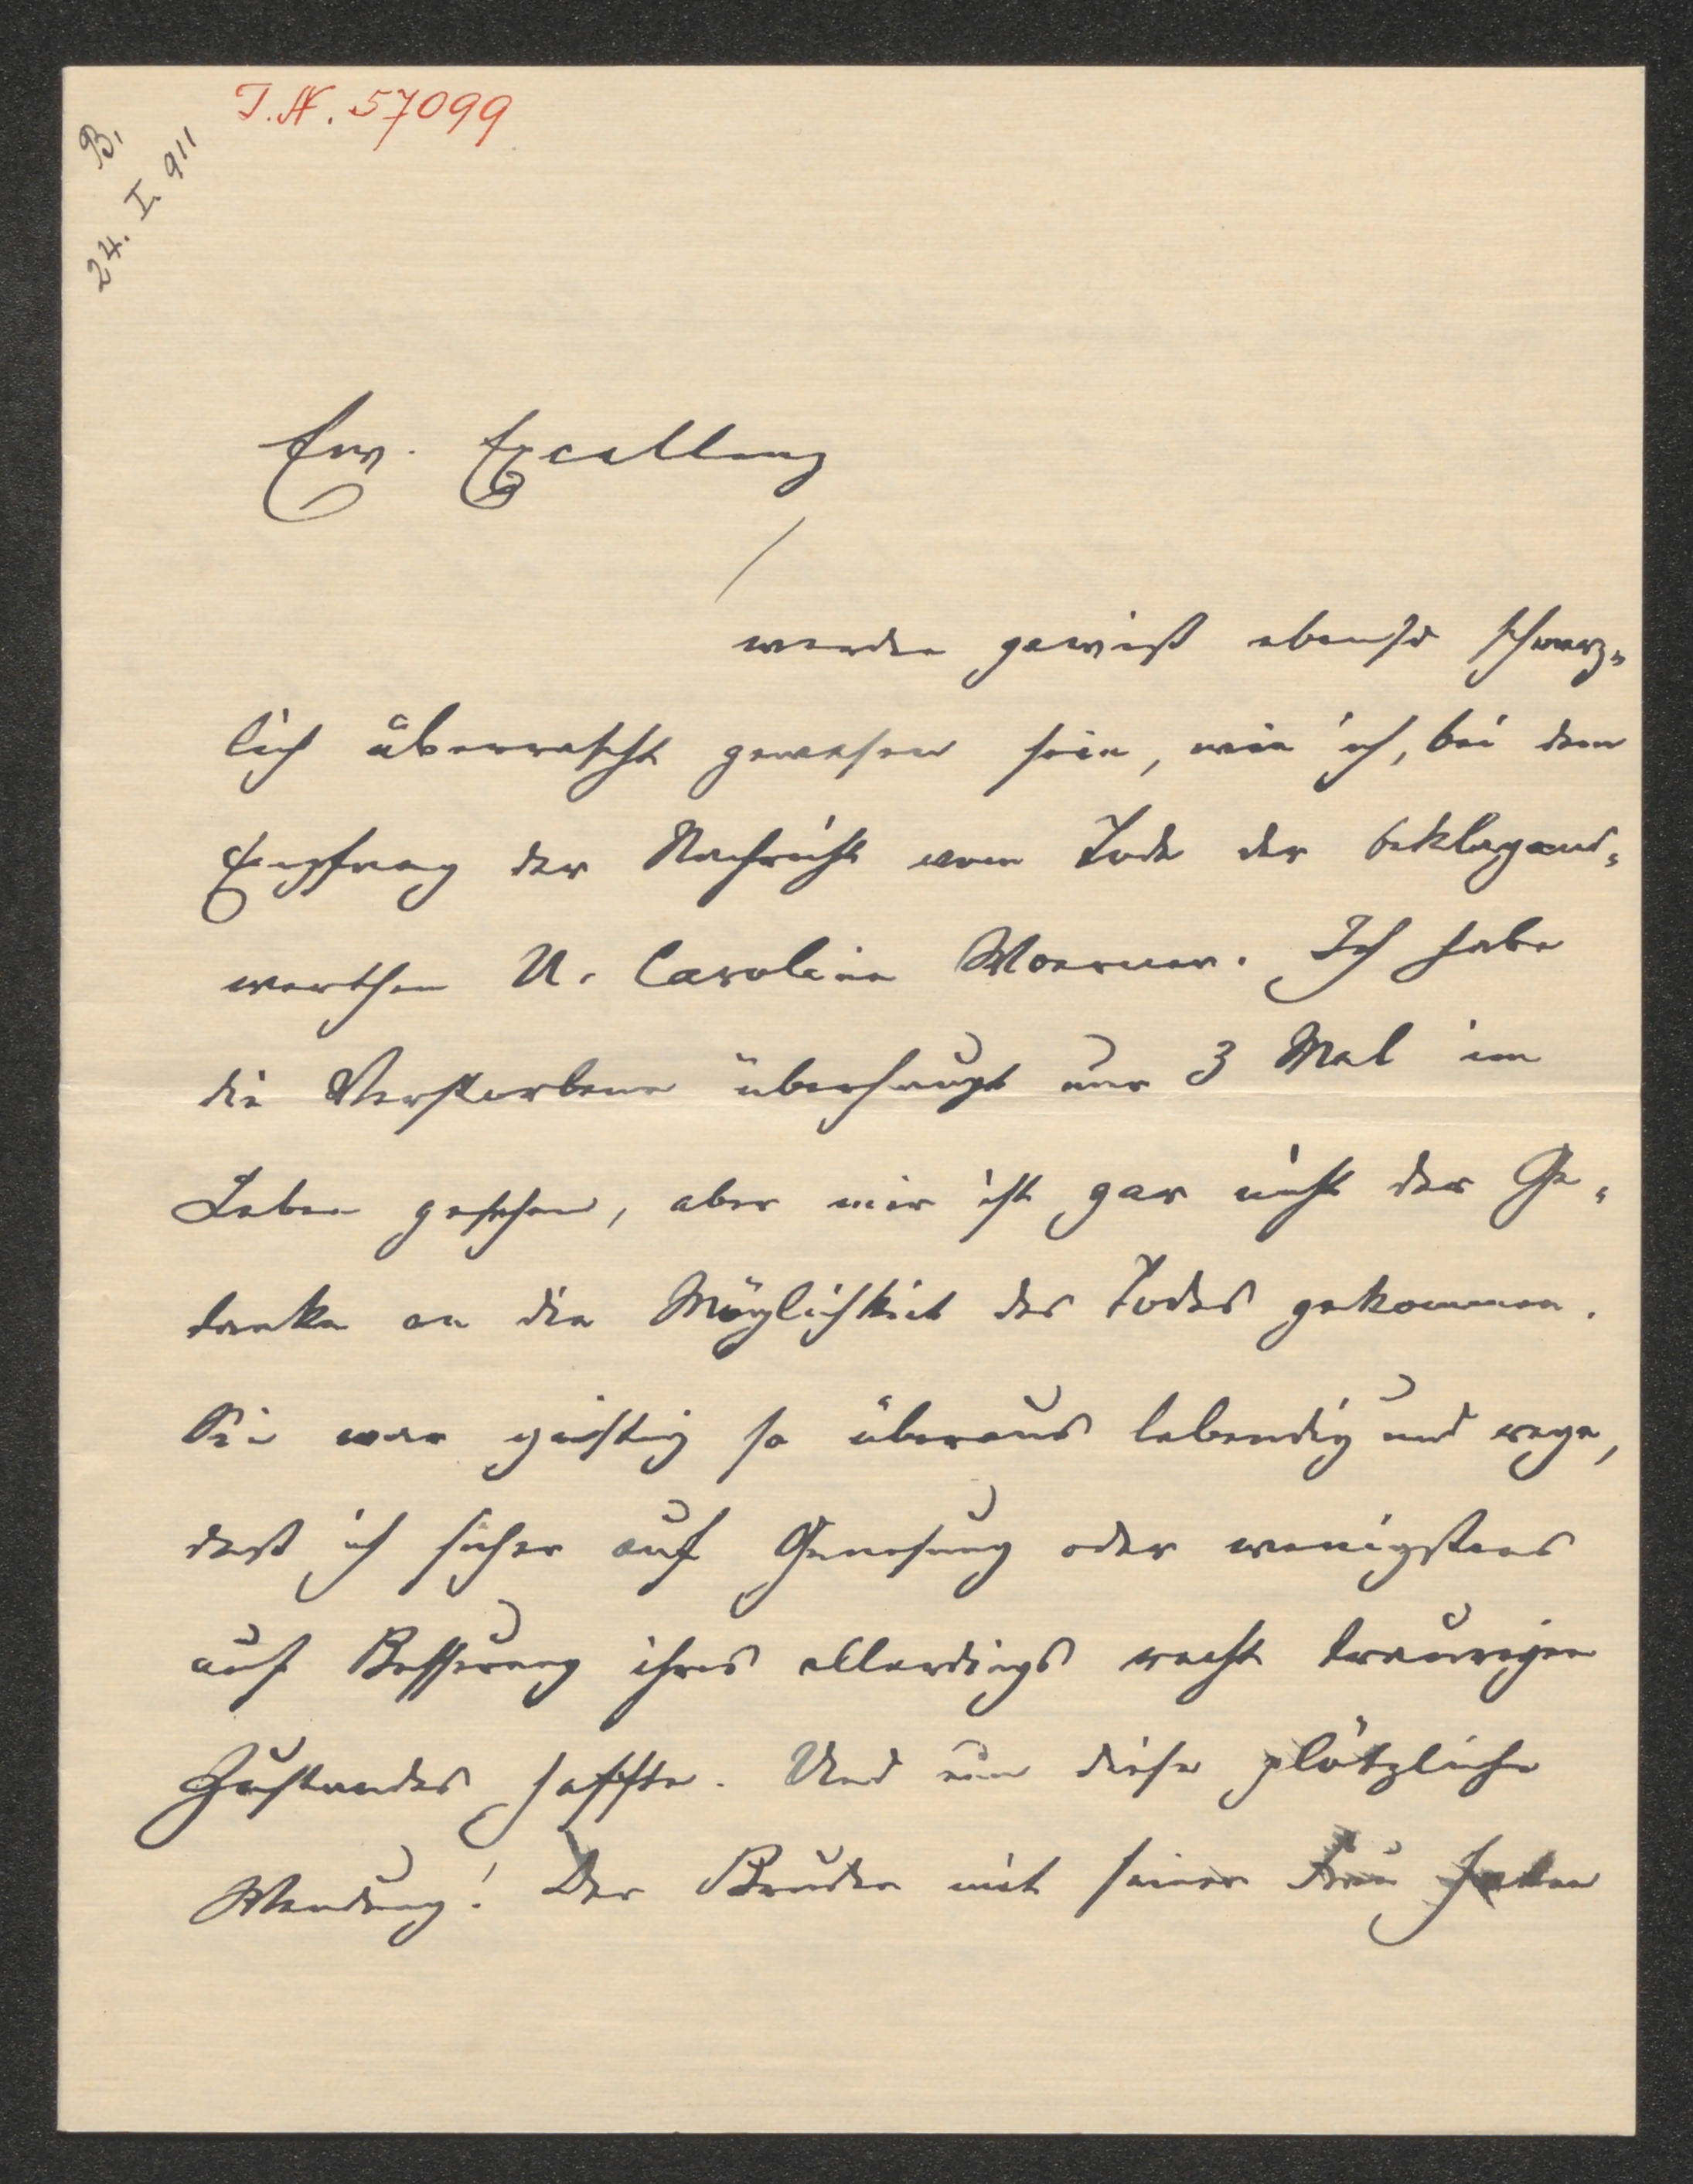 I.N. 57099
B,
24. I. 911
Ew. Excellenz
werden gewiß ebenso schmerz-
lich überrascht gewesen sein, wie ich, bei dem
Empfang der Nachricht vom Tode der beklagens-
werthen U. Caroline Woerner. Ich habe
die Verstorbene überhaupt nur 3 Mal im
Leben gesehen, aber mir ist gar nicht der Ge-
danke an die Möglichkeit des Todes gekommen.
Sie war geistig so überaus lebendig und rege,
daß ich sicher auf Genesung oder wenigstens
auf Besserung ihres allerdings recht traurigen
Zustandes hoffte. Und nun diese plötzliche
Wendung! Der Bruder mit seiner Frau hatten